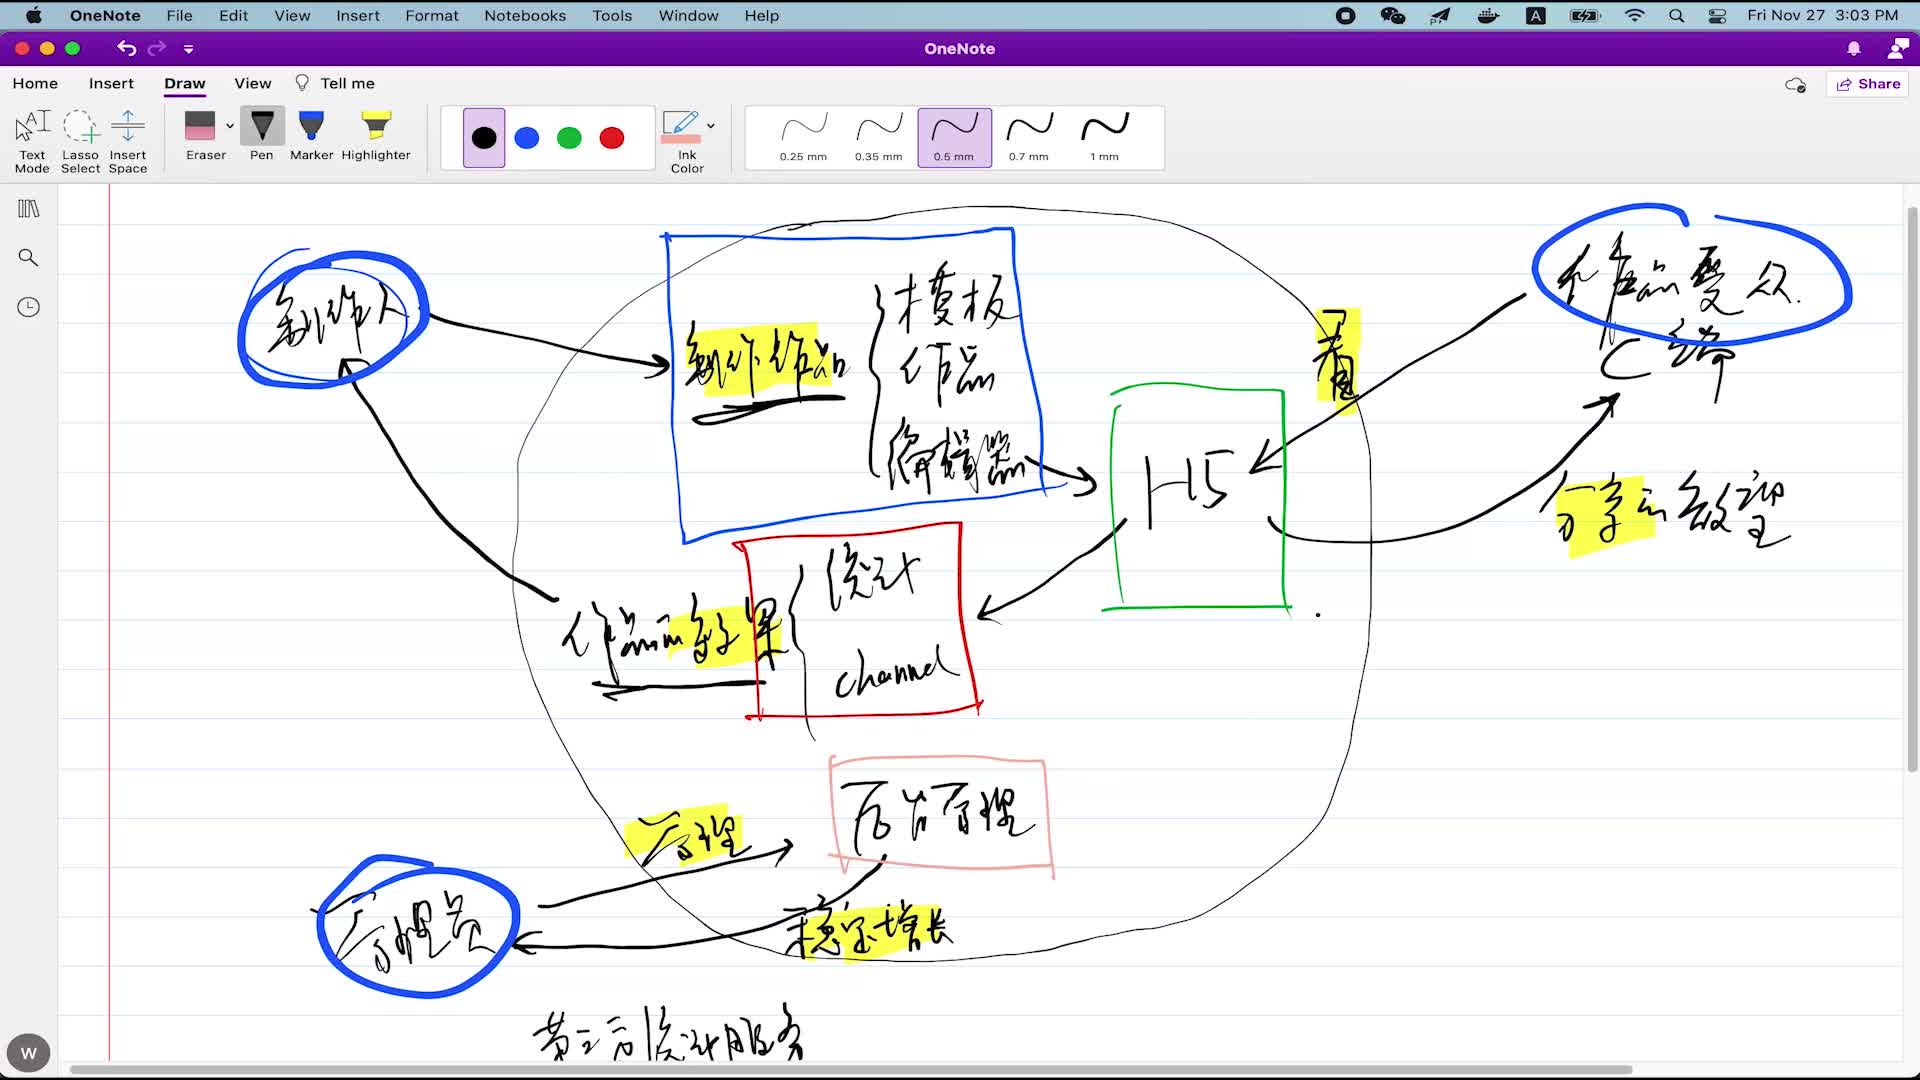 OneNote File Edit View Insert Format Notebooks Tools Window Help
A
Fri Nov 27 3:03 PM
OneNote
Home Insert Draw View Tell me
Share
Text Mode
Lasso Select
Insert Space
Eraser
Pen
Marker
Highlighter
Ink Color
0.25 mm
0.35 mm
0.5 mm
0.7 mm
1 mm
制作人
制作作品
模板
作品
编辑器
看
作品受众
C端
H5
分享
作品的效果
统计
channel
后台管理
管理
管理员
稳定增长
第三方统计服务
W